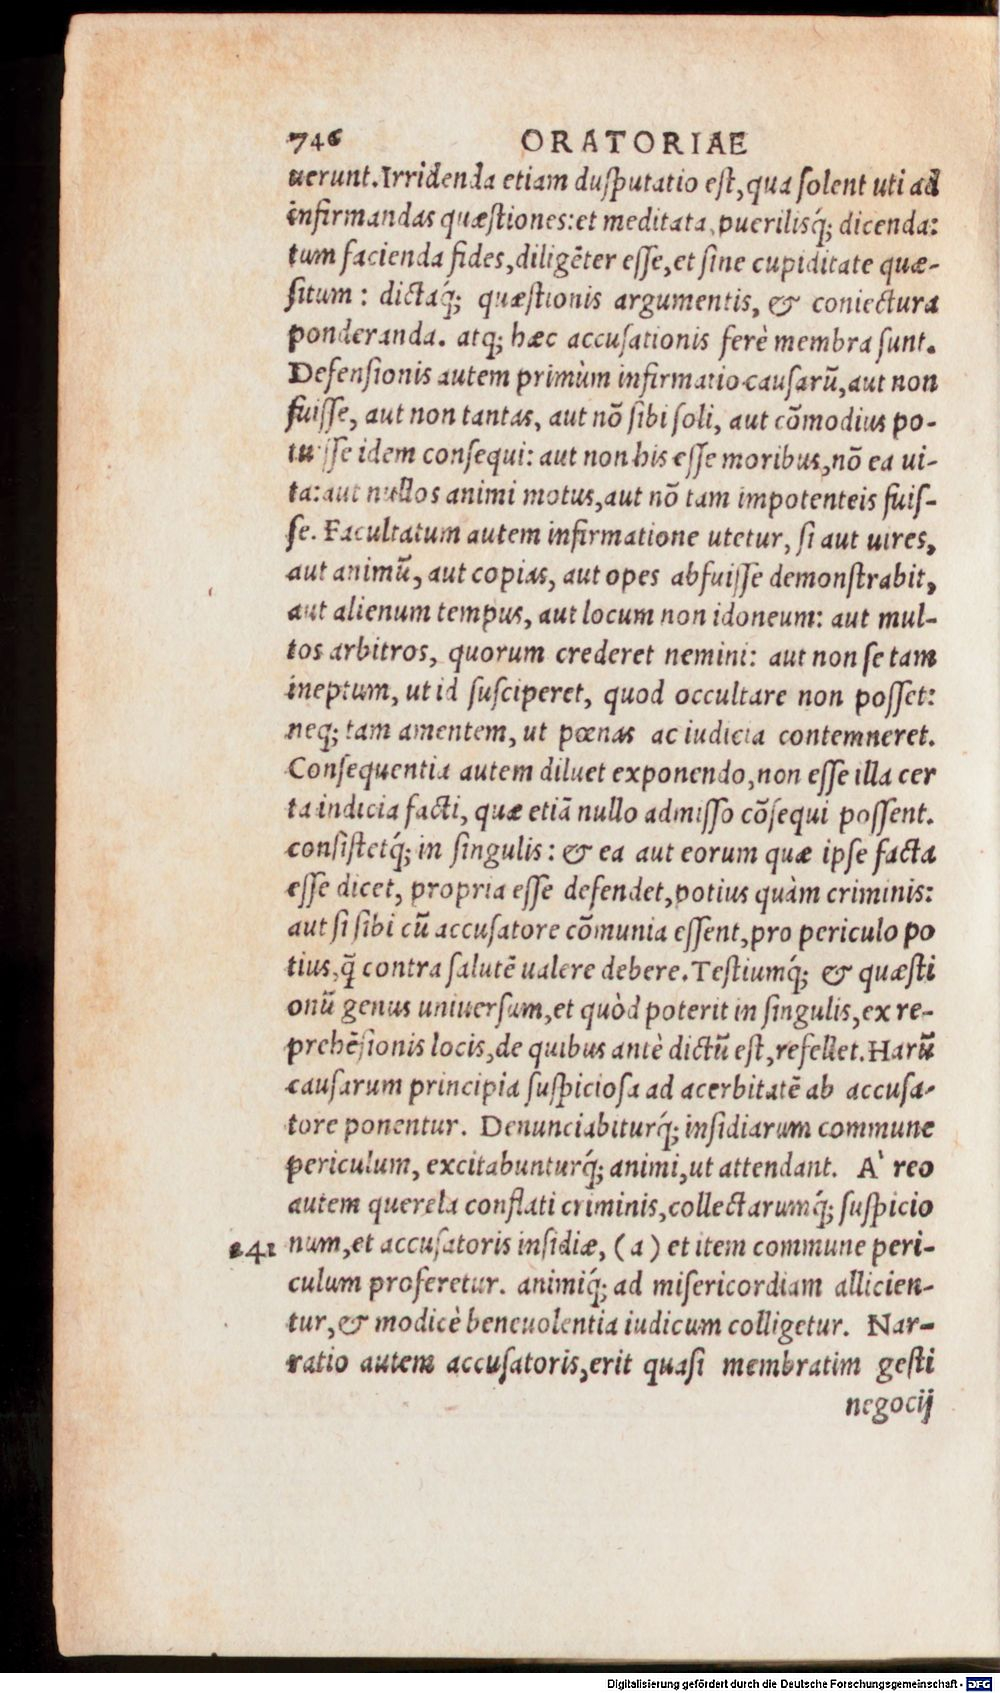 746 ORATORIAE
uerunt. Irridenda etiam dusputatio est, qua solent uti ad
infirmandas quæstiones: et meditata, puerilisq́; dicenda:
tum facienda fides, diligēter esse, et sine cupiditate quæ-
situm: dictaq́; quæstionis argumentis, & coniectura
ponderanda. atq; hæc accusationis ferè membra sunt.
Defensionis autem primùm infirmatio causarū, aut non
fuisse, aut non tantas, aut nō sibi soli, aut cōmodius po-
tuisse idem consequi: aut non his esse moribus, nō ea ui-
ta: aut nullos animi motus, aut nō tam impotenteis fuis-
se. Facultatum autem infirmatione utetur, si aut uires,
aut animū, aut copias, aut opes abfuisse demonstrabit,
aut alienum tempus, aut locum non idoneum: aut mul-
tos arbitros, quorum crederet nemini: aut non se tam
ineptum, ut id susciperet, quod occultare non posset:
neq; tam amentem, ut pœnas ac iudicia contemneret.
Consequentia autem diluet exponendo, non esse illa cer
ta indicia facti, quæ etiā nullo admisso cōsequi possent.
consistetq́; in singulis: & ea aut eorum quæ ipse facta
esse dicet, propria esse defendet, potius quàm criminis:
aut si sibi cū accusatore cōmunia essent, pro periculo po
tius, q̄ contra salutē ualere debere. Testiumq́; & quæsti
onū genus uniuersum, et quòd poterit in singulis, ex re-
prehēsionis locis, de quibus antè dictū est, refellet. Harū
causarum principia suspiciosa ad acerbitatē ab accusa-
tore ponentur. Denunciabiturq́; insidiarum commune
periculum, excitabunturq́; animi, ut attendant. A` reo
autem querela conflati criminis, collectarumq́; suspicio
241 num, et accusatoris insidiæ, (a) et item commune peri-
culum proferetur. animiq́; ad misericordiam allicien-
tur, & modicè beneuolentia iudicum colligetur. Nar-
ratio autem accusatoris, erit quasi membratim gesti
negocij
Digitalisierung gefördert durch die Deutsche Forschungsgemeinschaft - DFG